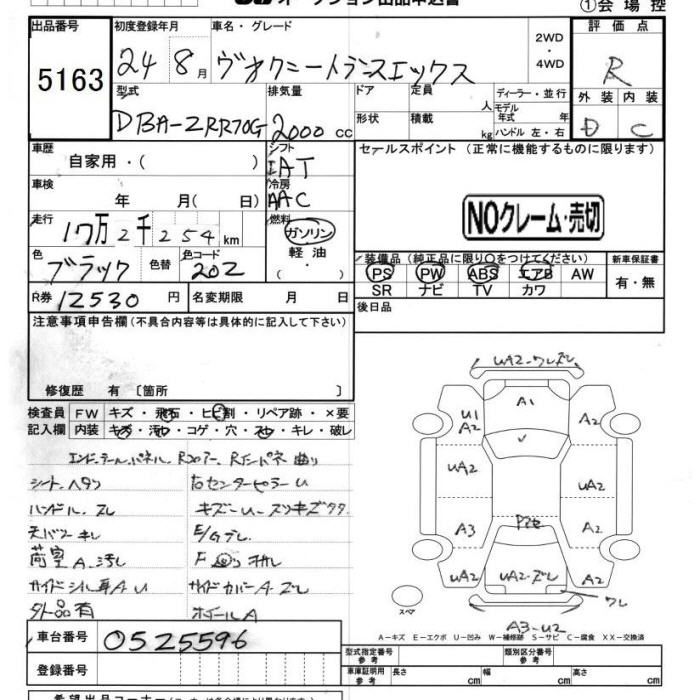 オークション出品申込書
①会場控
出品番号 初度登録年月 車名・グレード 2WD・4WD 評価点
5163 24年 8月 ヴォクシートランスエックス R
型式 排気量 ドア 定員 人 ディーラー・並行 外装 内装
DBA-ZRR70G 2000cc 形状 積載 kg モデル年式 年 ハンドル 左・右 D C
車歴 自家用・( ) シフト IAT セールスポイント (正常に機能するものに限ります)
車検 年 月( 日) 冷房 AAC
NOクレーム・売切
走行 17万2千254km 燃料 ガソリン 軽油・( )
色 ブラック 色替 色コード 202
装備品 (純正品に限り〇をつけてください) 新車保証書
PS PW ABS エアB AW 有・無
SR ナビ TV カワ
R券 12530円 名変期限 月 日 後日品
注意事項申告欄(不具合内容等は具体的に記入して下さい)
修復歴 有 [箇所 ]
検査員 FW キズ・飛石・ヒビ割・リペア跡・×要
記入欄 内装 キズ・汚れ・コゲ・穴・スレ・キレ・破レ
エンドテールパネル、Rフロアー、Rインパネ曲り
シートヘタリ 右センターピラーU
ハンドル スレ キズ・U・スリキズ
天バリ キレ E/G
荷室A・汚し F
サイドシル 耳A・U サイドカバーA・ズレ
外品有 ホイールA
UA2-ワレズレ
A1
U1 A2
A2
UA2
UA2
A3
A2
UA2
UA2-ズレ
A2
ワレ
スペア
A3-U2
A-キズ E-エクボ U-凹み W-補修跡 S-サビ C-腐食 XX-交換済
車台番号 0525596
登録番号
型式指定番号 参考 類別区分番号 参考
車庫証明用 参考 長さ cm 幅 cm 高さ cm
希望出品コーナー